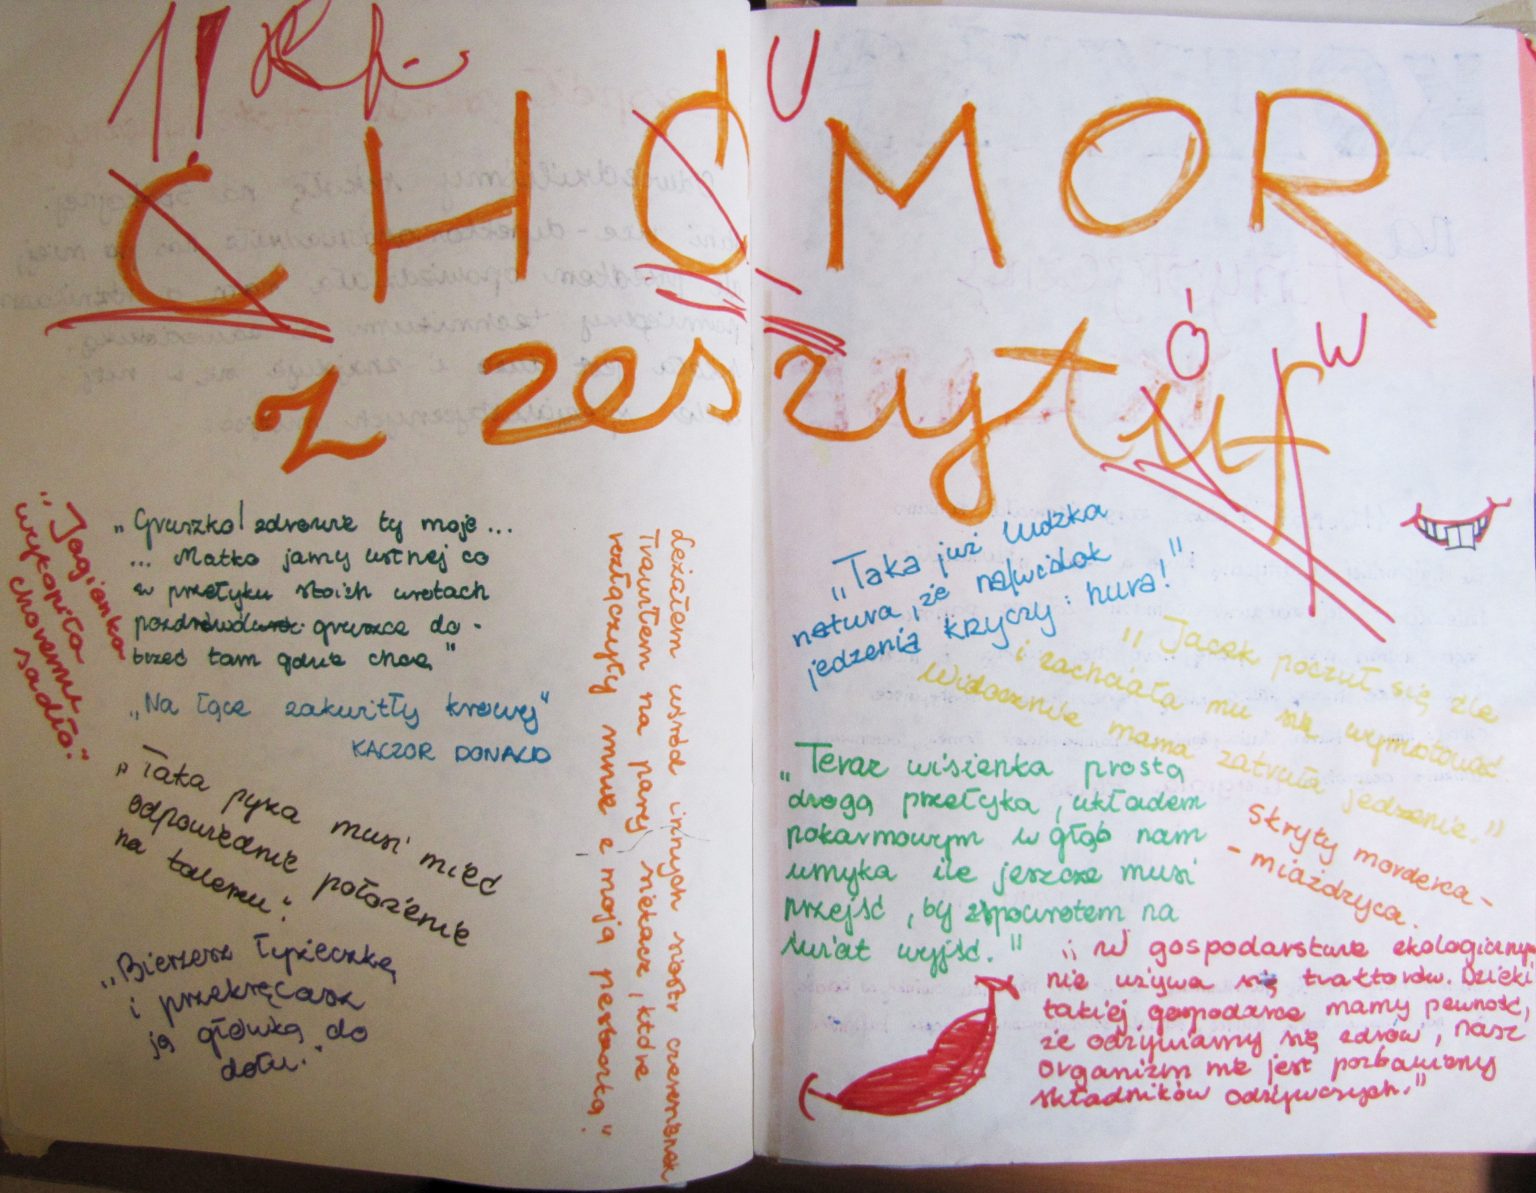 1! Rh-
U
ĆHÓMOR
z zeszytuf
Ó W
„Jagienka
wykopiła
choremu
sadło."
„Gruszko! zdrowie ty moje...
... Matko jamy ustnej co
w przełyku stoich wrotach
pozdrówducz gruszce do-
brzeć tam gdzie chce"
„Na łące zakwitły krowy"
KACZOR DONALD
„Taka pyza musi mieć
odpowiednie położenie
na talerzu".
„Bierzesz łyżeczkę
i przekręcasz
ją główką do
dołu."
Leżałem wśród innych siostr czereśniek
Trawiłem na parę siekacz, które
rozłączyły mnie z moją pesteczką"
„Taka już ludzka
natura, że na widok
jedzenia krzyczy: hura!"
" Jacek poczuł się źle
i zachciało mu się wymiotować
Widocznie mama zatruła jedzenie."
„Teraz wisienka prostą
drogą przełyka, układem
pokarmowym w głąb nam
umyka ile jeszcze musi
przejść, by zpowrotem na
świat wyjść."
Skryty morderca-
- miażdżyca.
„ W gospodarstwie ekologicznym
nie używa się traktorów. Dzięki
takiej gospodarce mamy pewność,
że odżywiamy się zdrów, nasz
organizm nie jest pozbawiony
składników odżywczych."